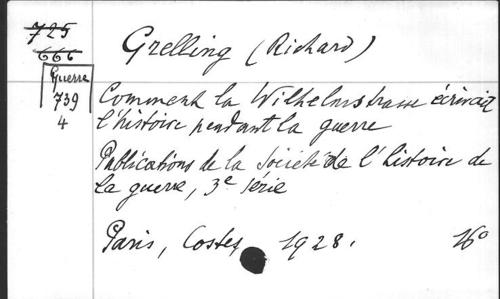 725
666
Guerre
739
4
Grelling (Richard)
Comment la Wilhelmstrasse écrivait
l'histoire pendant la guerre
Publications de la Société de l'histoire de
la guerre, 3e série
Paris, Costes, 1928. 16o